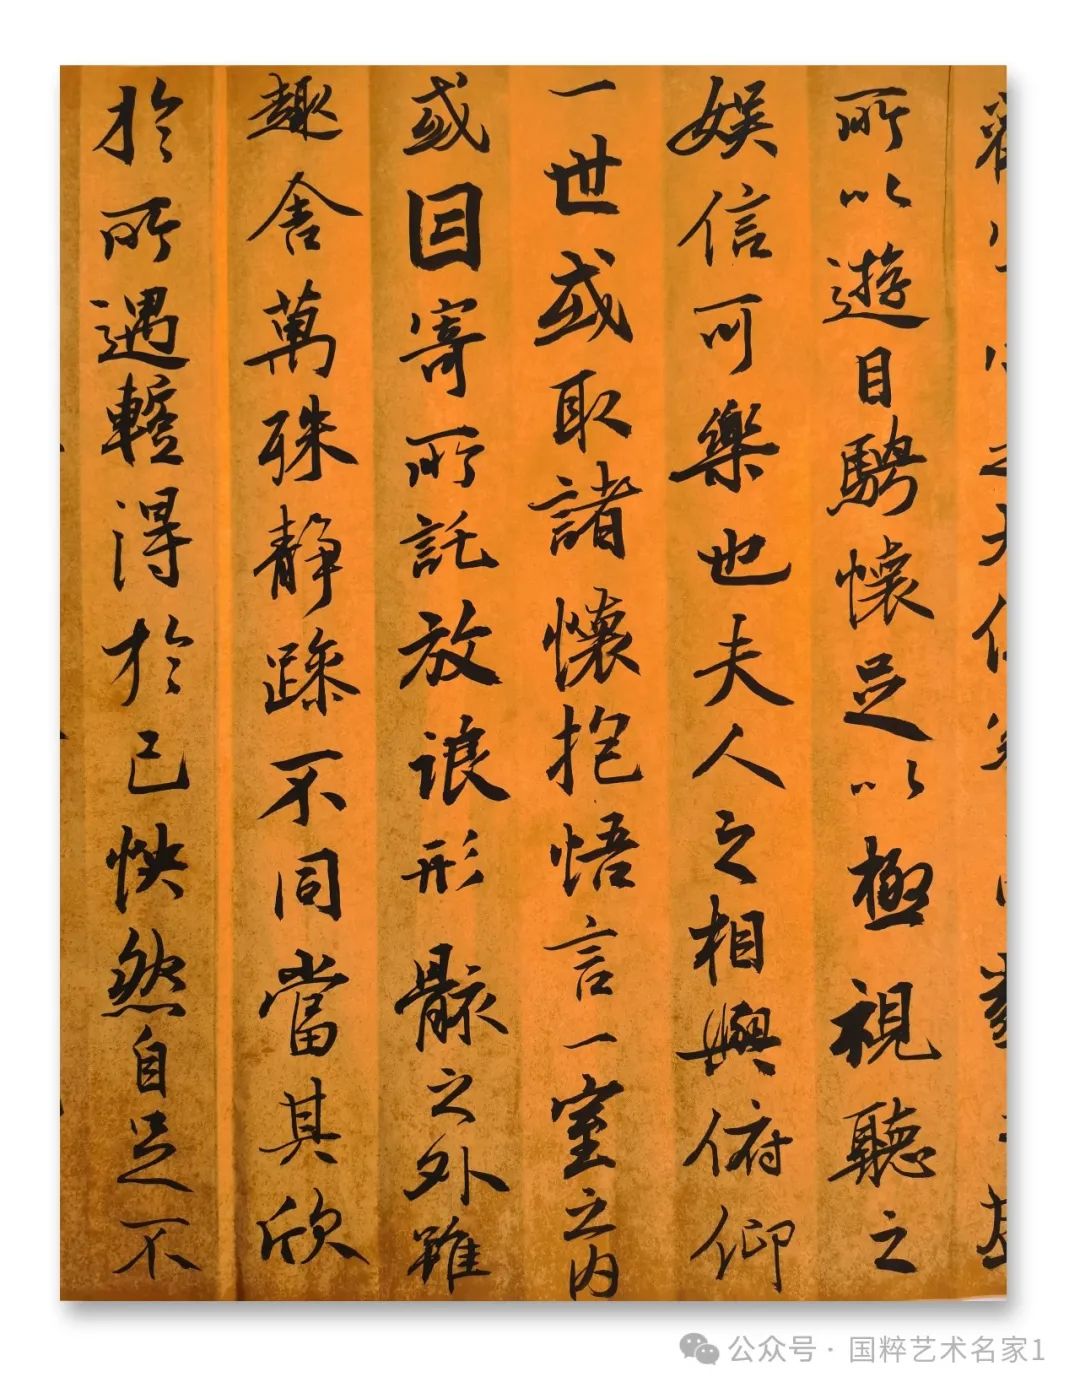 所以遊目騁懷足以極視聽之
娛信可樂也夫人之相與俯仰
一世或取諸懷抱悟言一室之內
或因寄所託放浪形骸之外雖
趣舍萬殊靜躁不同當其欣
於所遇暫得於己怏然自足不
公众号 · 国粹艺术名家1